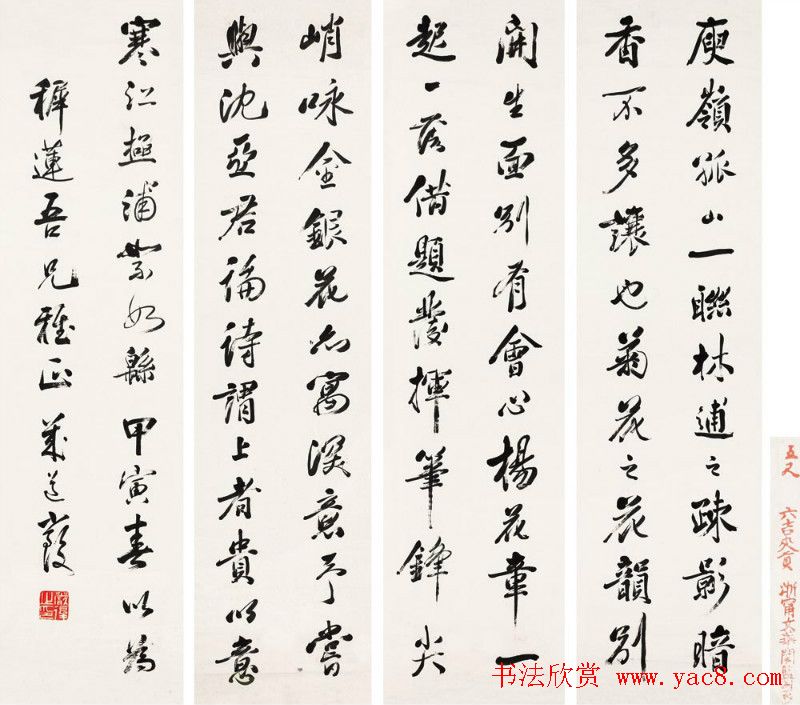 庾嶺孤山一聯林逋之疎影暗
香不多讓也菊花之花韻别
開生面别有會心楊花章一
起一落借題發揮筆鋒尖
峭咏金銀花亦寓深意予嘗
與沈亞君論詩謂上者貴以意
寒江極浦 甲寅春以爲
穉蓮吾兄雅正
五尺
六吉
书法欣赏 www.yac8.com